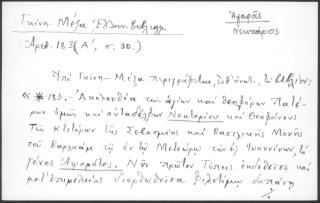 Γκίνη - Μέξα Ἑλλην. Βιβλιογρ.
Ἀψαρᾶς
Νεκτάριος
(Ἀριθ. 183 (Α΄, σ. 30.)
Ὑπὸ Γκίνη - Μέξα περιγράφεται, τὸ βιβλίον:
« * 183. - Ἀκολουθία τῶν ὁσίων καὶ θεοφόρων Πατέ-
ρων ἡμῶν καὶ αὐταδέλφων Νεκταρίου καὶ Θεοφάνους
Τῶν Κτιτόρων τῆς Σεβασμίας καὶ Βασιλικῆς Μονῆς
τοῦ Βαρλαὰμ τῆς ἐν τῷ Μετεώρῳ τῶν ἐξ Ἰωαννίνων, τὸ
γένος Ἀψαράδες. Νῦν πρῶτον Τύποις ἐκδοθεῖσα καὶ
μετ' ἐπιμελείας διορθωθεῖσα φιλοτίμῳ δαπάνῃ